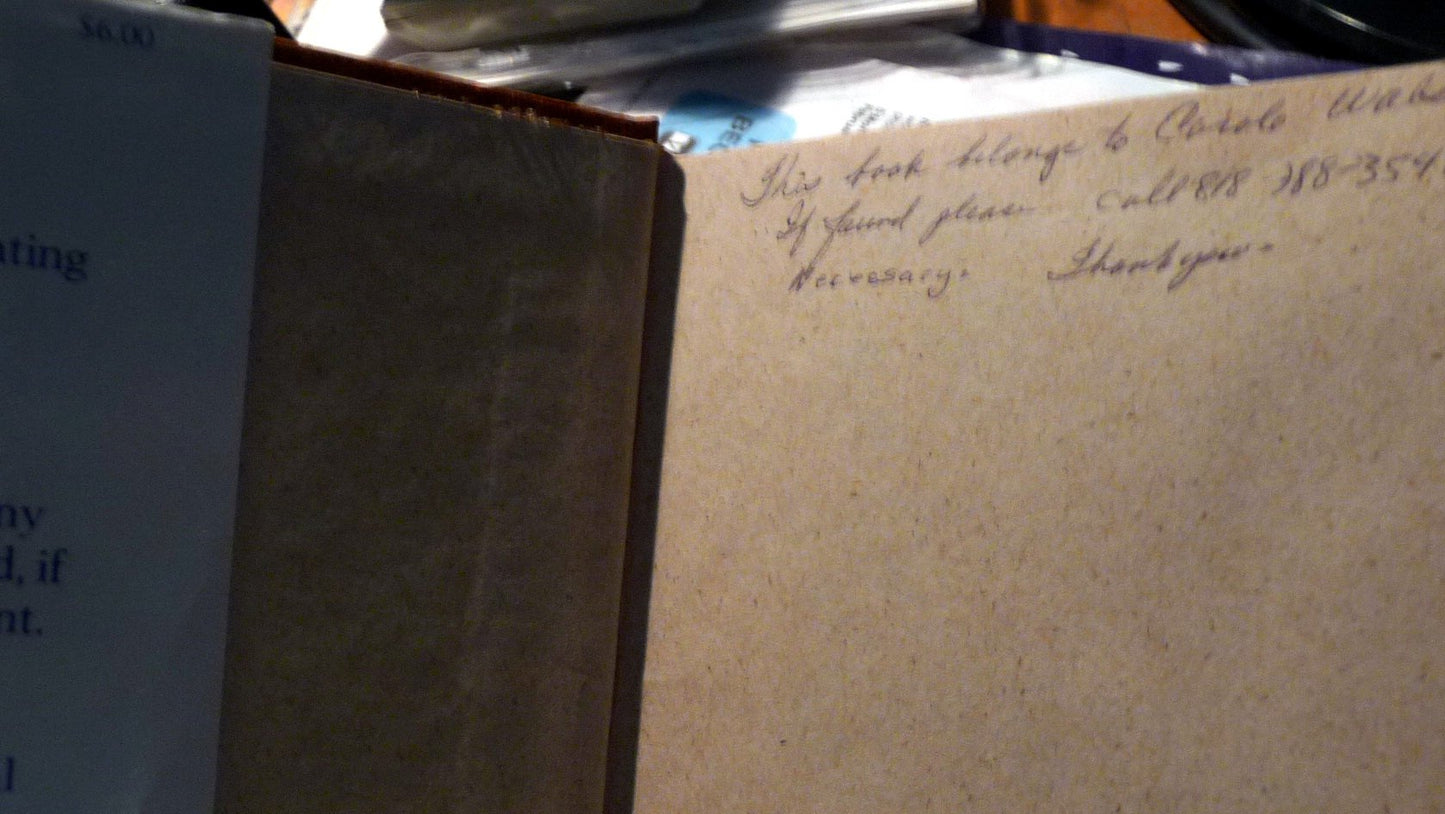 $6.00
ating
ny
d, if
nt.
l
This book belongs to Carole
If found please call 818
Necessary. Thankyou-